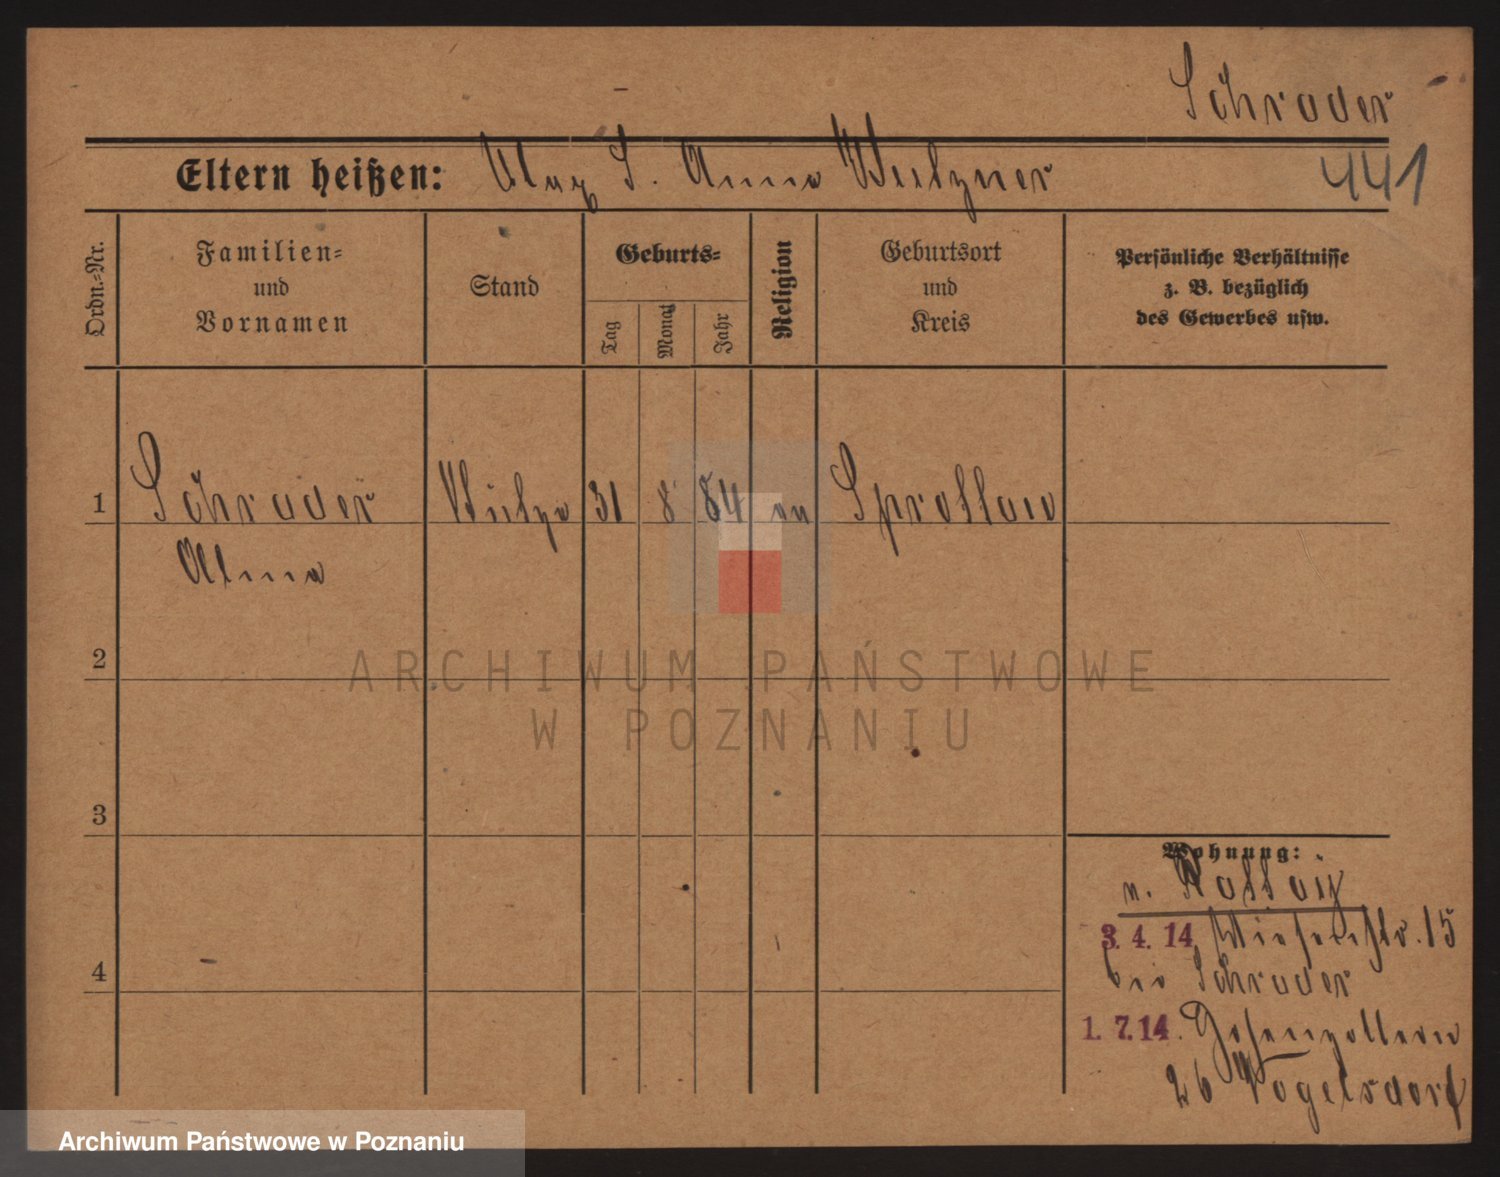 Schrader
Eltern heißen: S. Anna
441
Ordn.-Nr.
Familien-
und
Vornamen
Stand
Geburts-
Tag
Monat
Jahr
Religion
Geburtsort
und
Kreis
Persönliche Verhältnisse
z. B. bezüglich
des Gewerbes usw.
1 Schrader 31 8 84 Sprottau
Alma
2
3
4
Wohnung:
n.
3. 4. 14 Wiesenstr. 15
bei Schrader
1. 7. 14. Hohenzollern
26 Vogelsdorf
ARCHIWUM PAŃSTWOWE
W POZNANIU
Archiwum Państwowe w Poznaniu